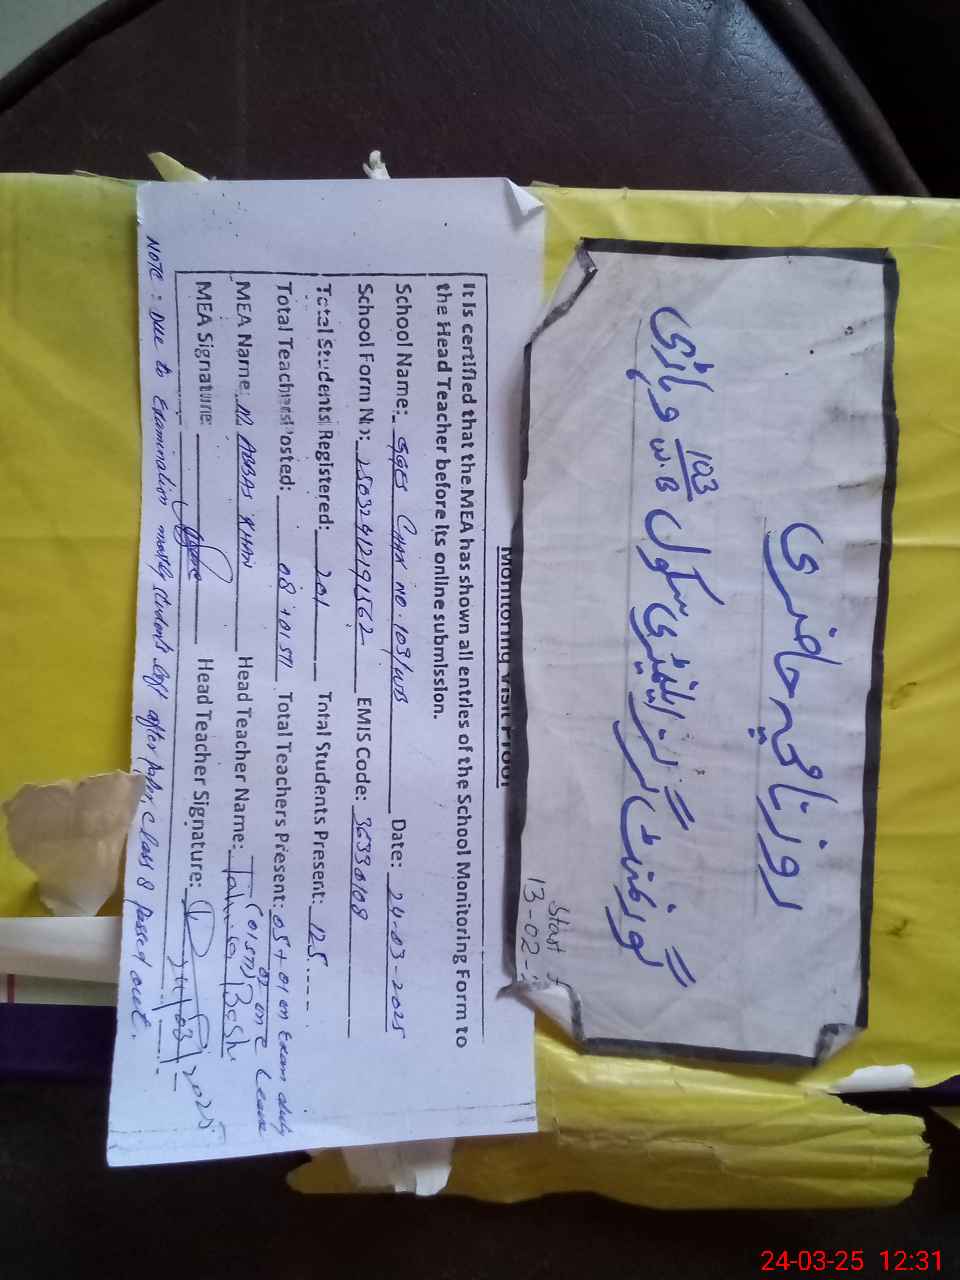 روزنامچہ حاضری
گورنمنٹ گرلز ایلیمنٹری سکول 103 W.B وہاڑی
Start
13-02-
Monitoring Visit Proof
It is certified that the MEA has shown all entries of the School Monitoring Form to
the Head Teacher before its online submission.
School Name: GGES Chak no. 103/WB Date: 24-03-2025
School Form No: 25032412191562 EMIS Code: 36330108
Total Students Registered: 201 Total Students Present: 125
Total Teachers Posted: 08 + 01 STI Total Teachers Present: 05 + 01 on Exam duty
(01 STI) 02 on C Leave
MEA Name: M ABBAS KHAN Head Teacher Name: Tahira Bashir
MEA Signature: Head Teacher Signature:
24/03/2025
NOTE: Due to Examination mostly students left after paper, class 8 passed out.
24-03-25 12:31